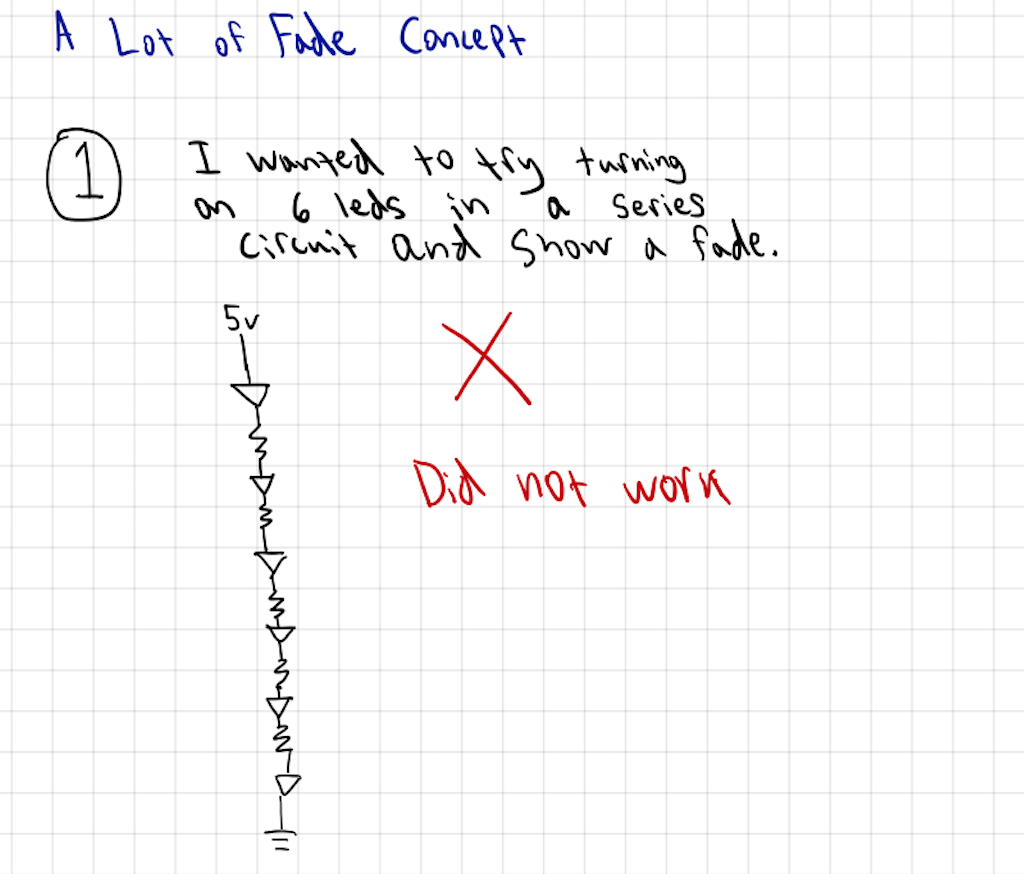 A Lot of Fade Concept
1
I wanted to try turning
on 6 leds in a series
circuit and show a fade.
5v
Did not work